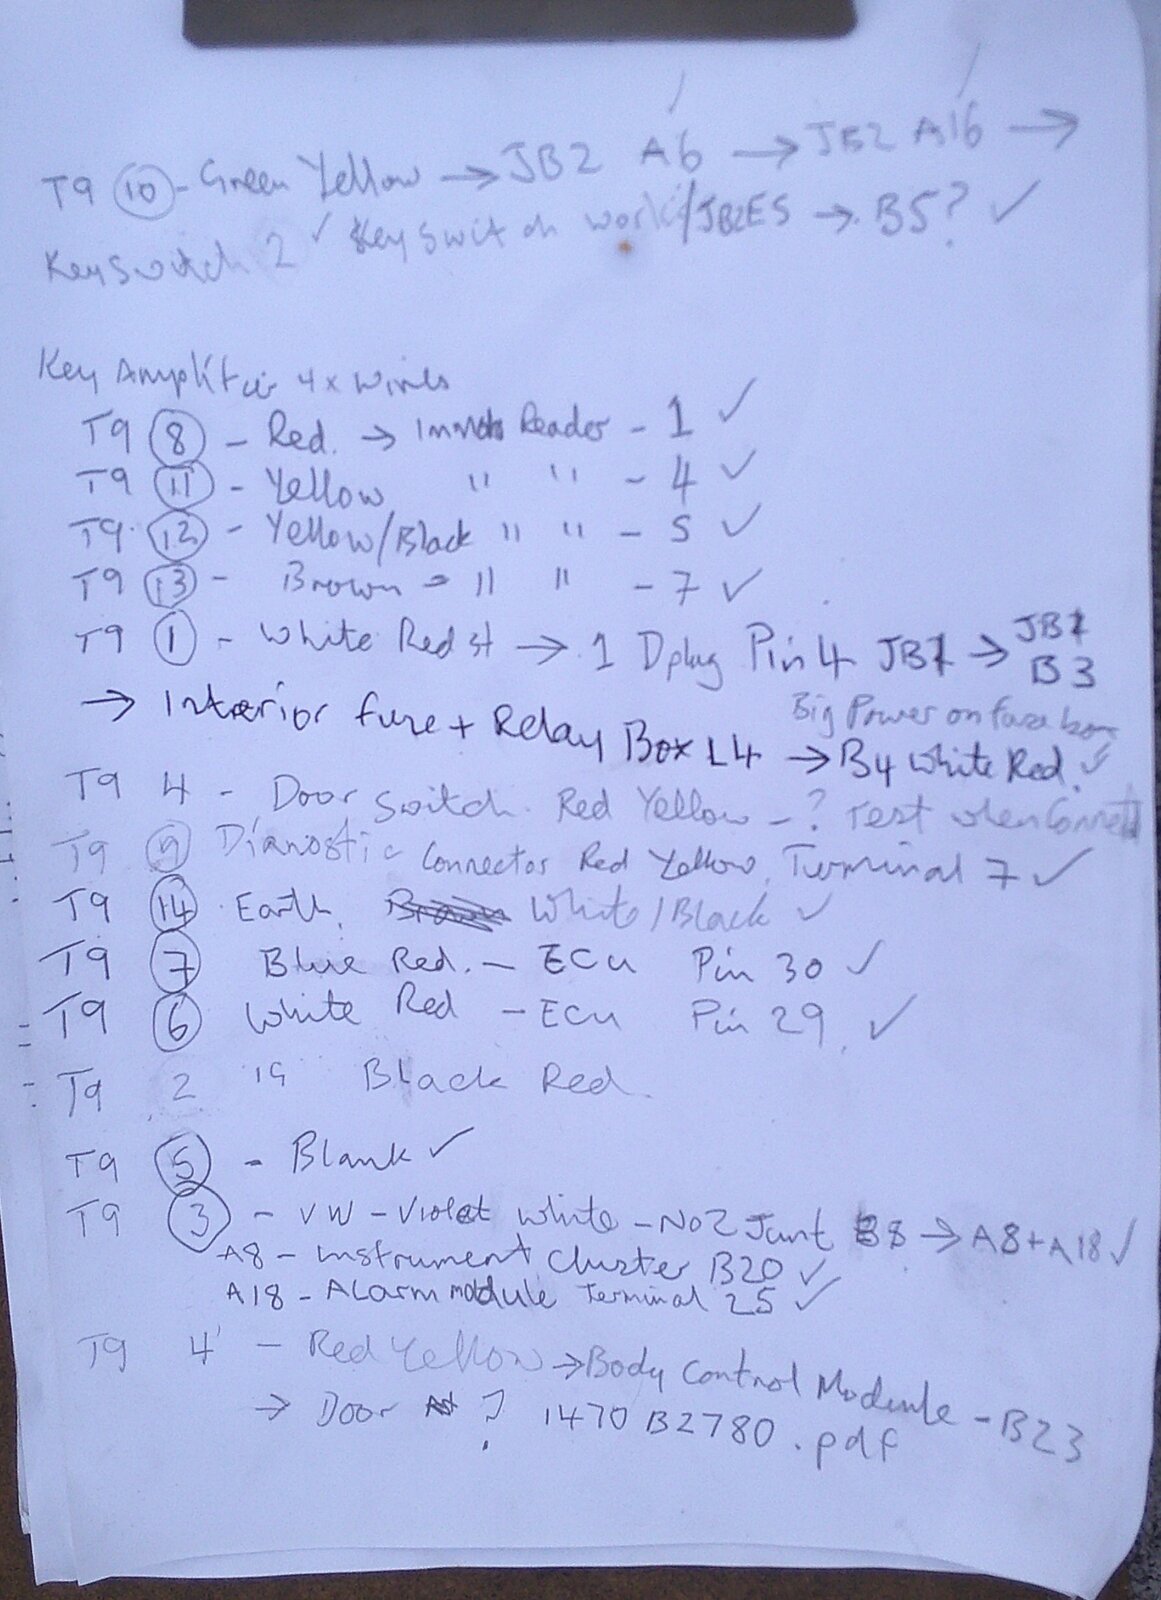 T9 10 - Green Yellow → JB2 A6 → JB2 A16 →
Keyswitch 2 ✓ Keyswitch work /JB2E5 → B5? ✓
Key Amplifier 4x wires
T9 8 - Red. → Immob Reader - 1 ✓
T9 11 - Yellow " " - 4 ✓
T9 12 - Yellow/Black " " - 5 ✓
T9 13 - Brown - " " - 7 ✓
T9 1 - White Red → 1 D plug Pin 4 JB1 → JB1 B3
→ Interior fuse + Relay Box L4 → B4 White Red ✓
Big Power on fuse box
T9 4 - Door Switch. Red Yellow - ? Test when Connected
T9 9 Dianostic Connector Red Yellow, Terminal 7 ✓
T9 14 Earth. White/Black ✓
T9 7 Blue Red. - ECU Pin 30 ✓
T9 6 White Red - ECU Pin 29 ✓
T9 2 Black Red.
T9 5 - Blank ✓
T9 3 - VW - Violet White - No2 Junt B8 → A8+A18 ✓
A8 - Instrument Cluster B20 ✓
A18 - Alarm module Terminal 25 ✓
T9 4 - Red Yellow → Body Control Module - B23
→ Door ? 1470B2780.pdf